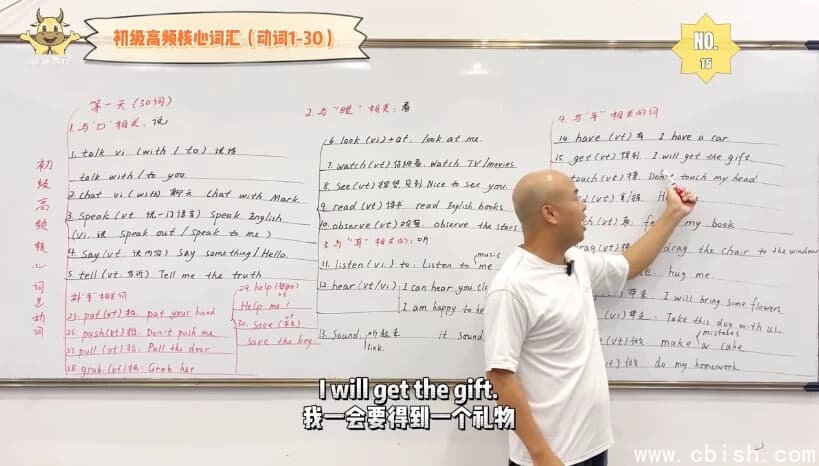 初级高频核心词汇（动词1-30）
NO.
15
第一天（30词）
1. 与"口"相关：说
1. talk vi (with / to) 谈话
talk with / to you.
2. chat vi (with) 聊天 Chat with Mark.
3. Speak (vt. 说一门语言) Speak English
(vi. 讲 Speak out / Speak to me)
4. Say (vt. 说内容) Say something / Hello.
5. tell (vt. 告诉) Tell me the truth
初级高频核心词汇动词
补"手"相关词
25. pat (vt) 拍: pat your hand
26. push (vt) 推: Don't push me
27. pull (vt) 拉: Pull the door
28. grab (vt) 抓: Grab her
29. help (帮助) vt
Help me!
30. save (vt)
Save the boy.
2. 与"眼"相关：看
6. look (vi) + at: look at me.
7. watch (vt) Watch TV / movies.
8. See (vt) Nice to see you.
9. read (vt) 读书 read English books.
10. observe (vt) 观察 observe the stars.
3. 与"耳"相关的：听
11. listen (vi.) to: Listen to music
me
12. hear (vt/vi) I can hear you
I am happy to he
13. Sound 听起来 it sound
link.
4. 与"手"相关的词
14. have (vt) 有 I have a car.
15. get (vt) 得到 I will get the gift
touch (vt) 摸 Don't touch my head
my book
drag the chair to the window
hug me.
I will bring some flowers.
(vi) Take this dog with us.
mistakes
(vt) 做 make a cake
(vt) 做 do my homework
I will get the gift.
我一会要得到一个礼物
www.cbish.com